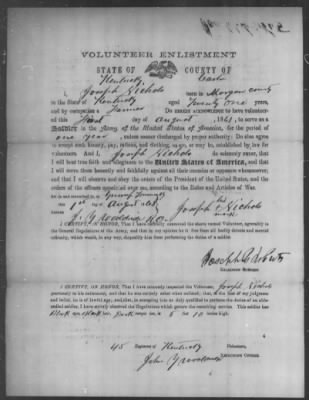 VOLUNTEER ENLISTMENT
STATE OF COUNTY OF
Kentucky
I, Joseph Nichols born in Morgan county
in the State of Kentucky aged Twenty one years,
and by occupation a Farmer DO HEREBY ACKNOWLEDGE to have volunteered
this First day of August 186 , to serve as a
Soldier in the Army of the United States of America, for the period of
one year unless sooner discharged by proper authority: Do also agree
to accept such bounty, pay, rations, and clothing, as are, or may be, established by law for
volunteers. And I, Joseph Nichols do solemnly swear, that
I will bear true faith and allegiance to the United States of America, and that I
will serve them honestly and faithfully against all their enemies or opposers whomsoever;
and that I will observe and obey the orders of the President of the United States, and the
orders of the officers appointed over me, according to the Rules and Articles of War.
1st August
Joseph his Nichols
mark
I CERTIFY, ON HONOR, That I have carefully examined the above named Volunteer, agreeably to
the General Regulations of the Army, and that in my opinion he is free from all bodily defects and mental
infirmity, which would, in any way, disqualify him from performing the duties of a soldier.
EXAMINING SURGEON.
I CERTIFY, ON HONOR, That I have minutely inspected the Volunteer, Joseph Nichols
previously to his enlistment, and that he was entirely sober when enlisted; that, to the best of my judgment
and belief, he is of lawful age; and that, in accepting him as duly qualified to perform the duties of an able-
bodied soldier, I have strictly observed the Regulations which govern the recruiting service. This soldier has
Black eyes, Black hair, Dark complexion, is 5 feet 10 inches high.
45 Regiment of Kentucky
RECRUITING OFFICER.